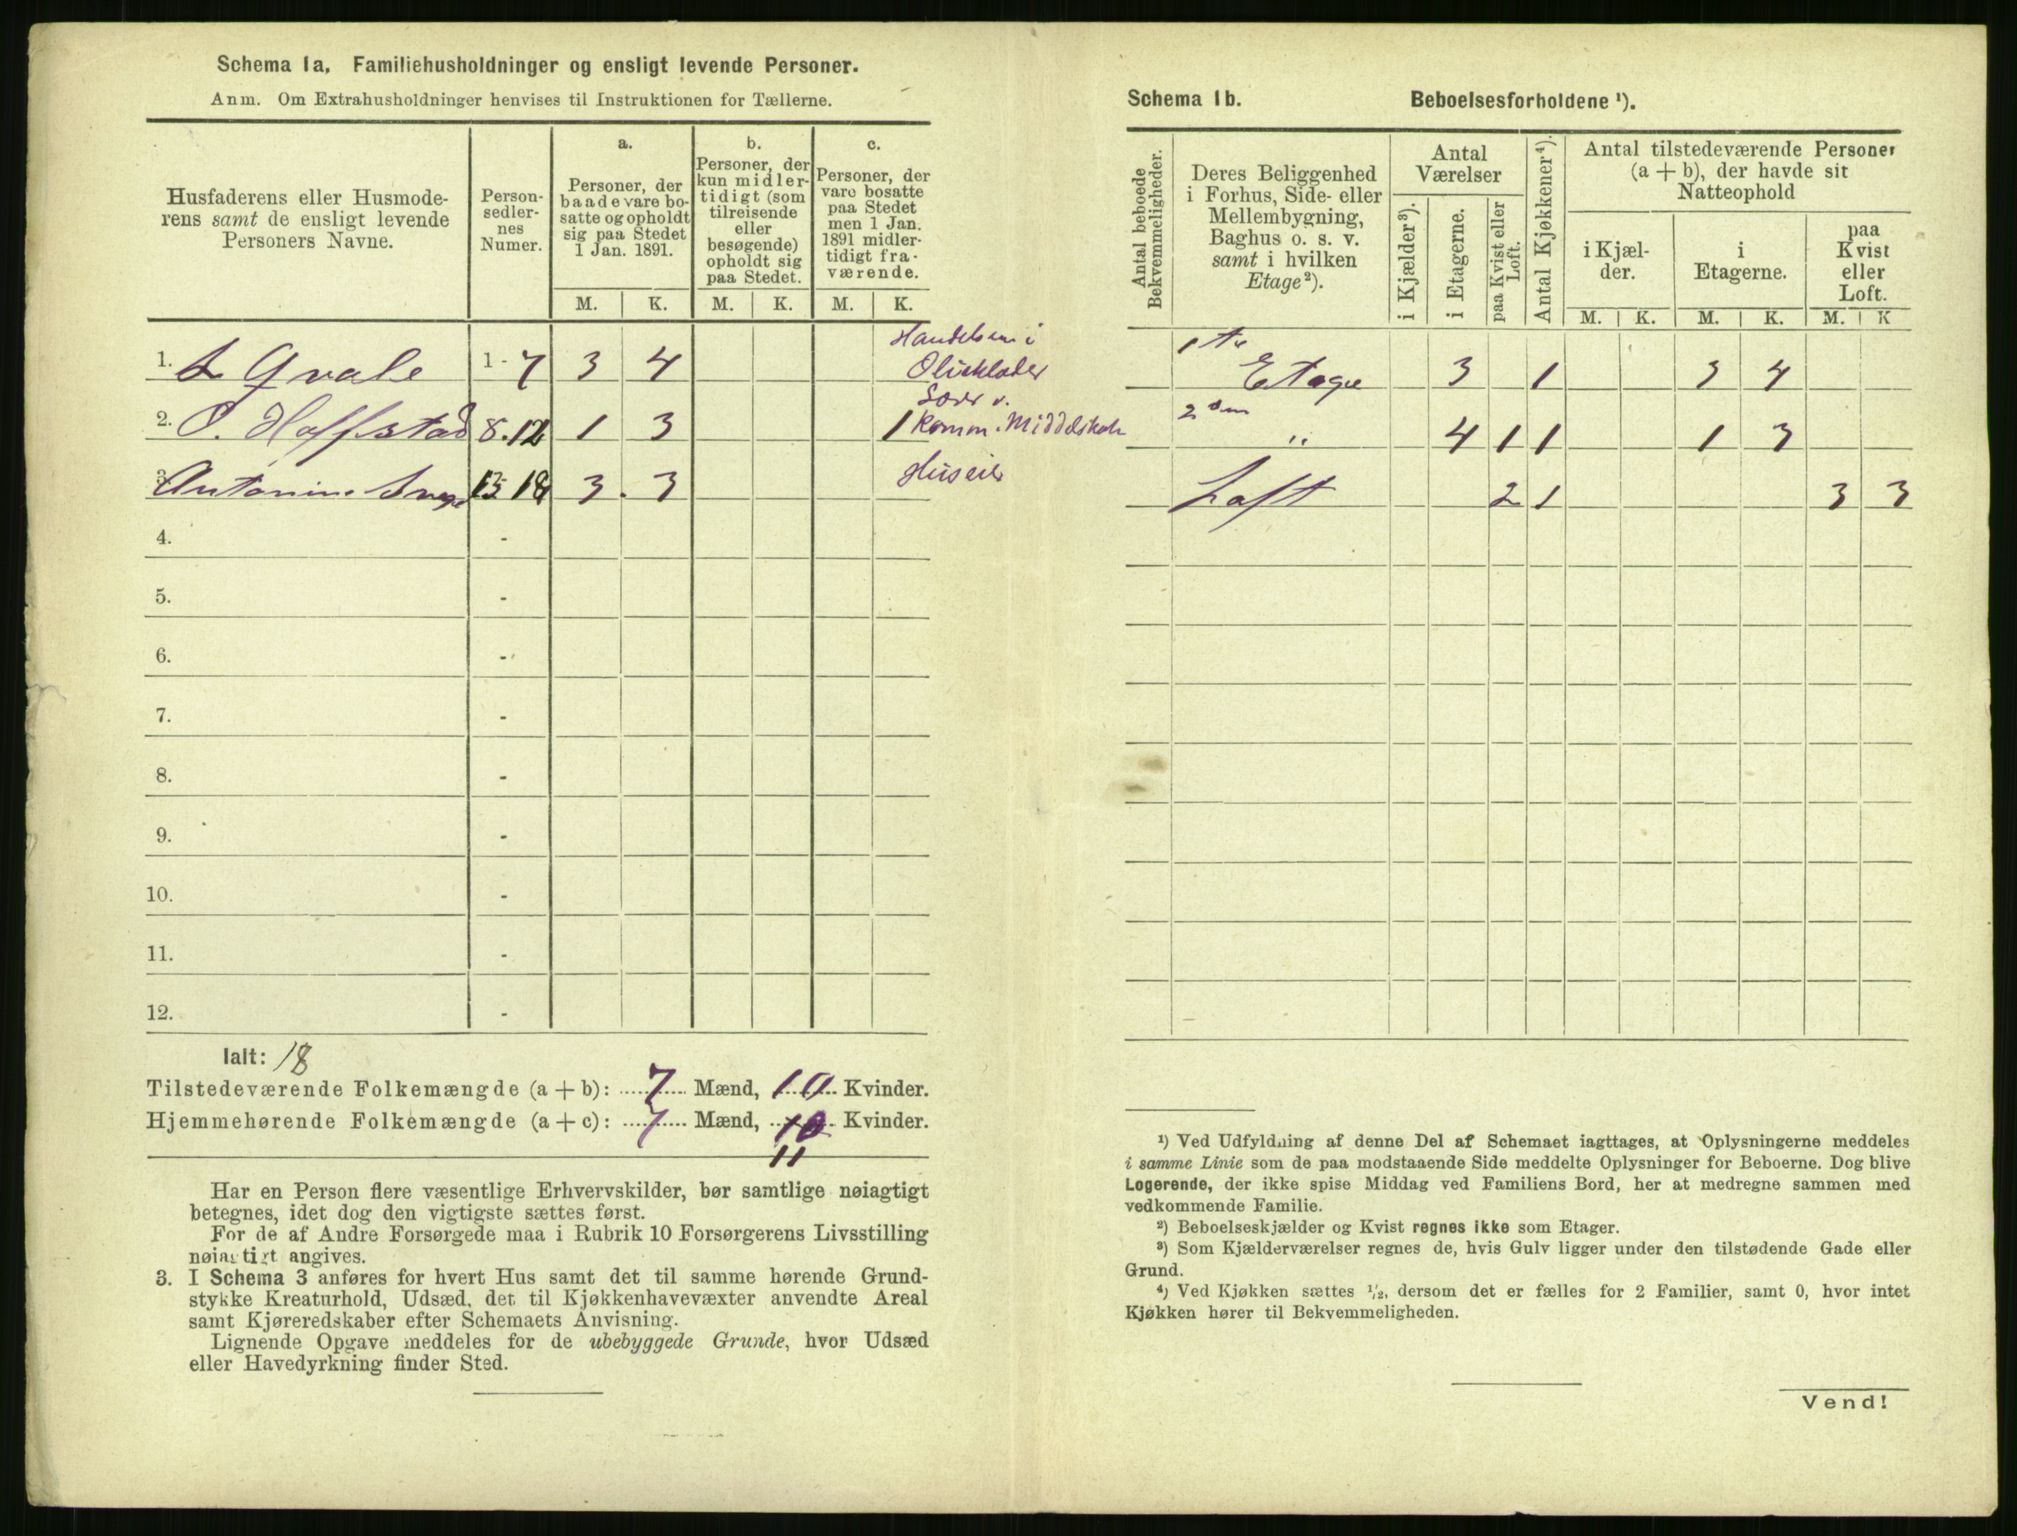 Schema 1a. Familiehusholdninger og ensligt levende Personer.
Anm. Om Extrahusholdninger henvises til Instruktionen for Tællerne.
Husfaderens eller Husmode-
rens samt de ensligt levende
Personers Navne.
Person-
sedler-
nes
Numer.
a.
Personer, der
baade vare bo-
satte og opholdt
sig paa Stedet
1 Jan. 1891.
b.
Personer, der
kun midler-
tidigt (som
tilreisende
eller
besøgende)
opholdt sig
paa Stedet.
c.
Personer, der
vare bosatte
paa Stedet
men 1 Jan.
1891 midler-
tidigt fra-
værende.
M. K. M. K. M. K.
1. L Qvale 1 - 7 3 4 i
2. O. Hoffstad 8-12 1 3 1 Komm. Middelskole
3. 13 18 3 . 3 Huseier
4. -
5. -
6. -
7. -
8. -
9. -
10. -
11. -
12. -
Ialt: 18
Tilstedeværende Folkemængde (a + b): 7 Mænd, 10 Kvinder.
Hjemmehørende Folkemængde (a + c): 7 Mænd, 10 Kvinder.
11
Har en Person flere væsentlige Erhvervskilder, bør samtlige nøiagtigt
betegnes, idet dog den vigtigste sættes først.
For de af Andre Forsørgede maa i Rubrik 10 Forsørgerens Livsstilling
nøiagtigt angives.
3. I Schema 3 anføres for hvert Hus samt det til samme hørende Grund-
stykke Kreaturhold, Udsæd, det til Kjøkkenhavevæxter anvendte Areal
samt Kjøreredskaber efter Schemaets Anvisning.
Lignende Opgave meddeles for de ubebyggede Grunde, hvor Udsæd
eller Havedyrkning finder Sted.
Schema 1b. Beboelsesforholdene ¹).
Antal beboede
Bekvemmeligheder.
Deres Beliggenhed
i Forhus, Side- eller
Mellembygning,
Baghus o. s. v.
samt i hvilken
Etage²).
Antal
Værelser
i Kjælder³).
i Etagerne.
paa Kvist eller
Loft.
Antal Kjøkkener⁴).
Antal tilstedeværende Personer
(a + b), der havde sit
Natteophold
i Kjæl-
der.
i
Etagerne.
paa
Kvist
eller
Loft.
M. K. M. K. M. K
1 te
Etage 3 1 3 4
2 den
" 4 1 1 1 3
Loft 2 1 3 3
¹) Ved Udfyldning af denne Del af Schemaet iagttages, at Oplysningerne meddeles
i samme Linie som de paa modstaaende Side meddelte Oplysninger for Beboerne. Dog blive
Logerende, der ikke spise Middag ved Familiens Bord, her at medregne sammen med
vedkommende Familie.
²) Beboelseskjælder og Kvist regnes ikke som Etager.
³) Som Kjælderværelser regnes de, hvis Gulv ligger under den tilstødende Gade eller
Grund.
⁴) Ved Kjøkken sættes ¹/₂, dersom det er fælles for 2 Familier, samt 0, hvor intet
Kjøkken hører til Bekvemmeligheden.
Vend!